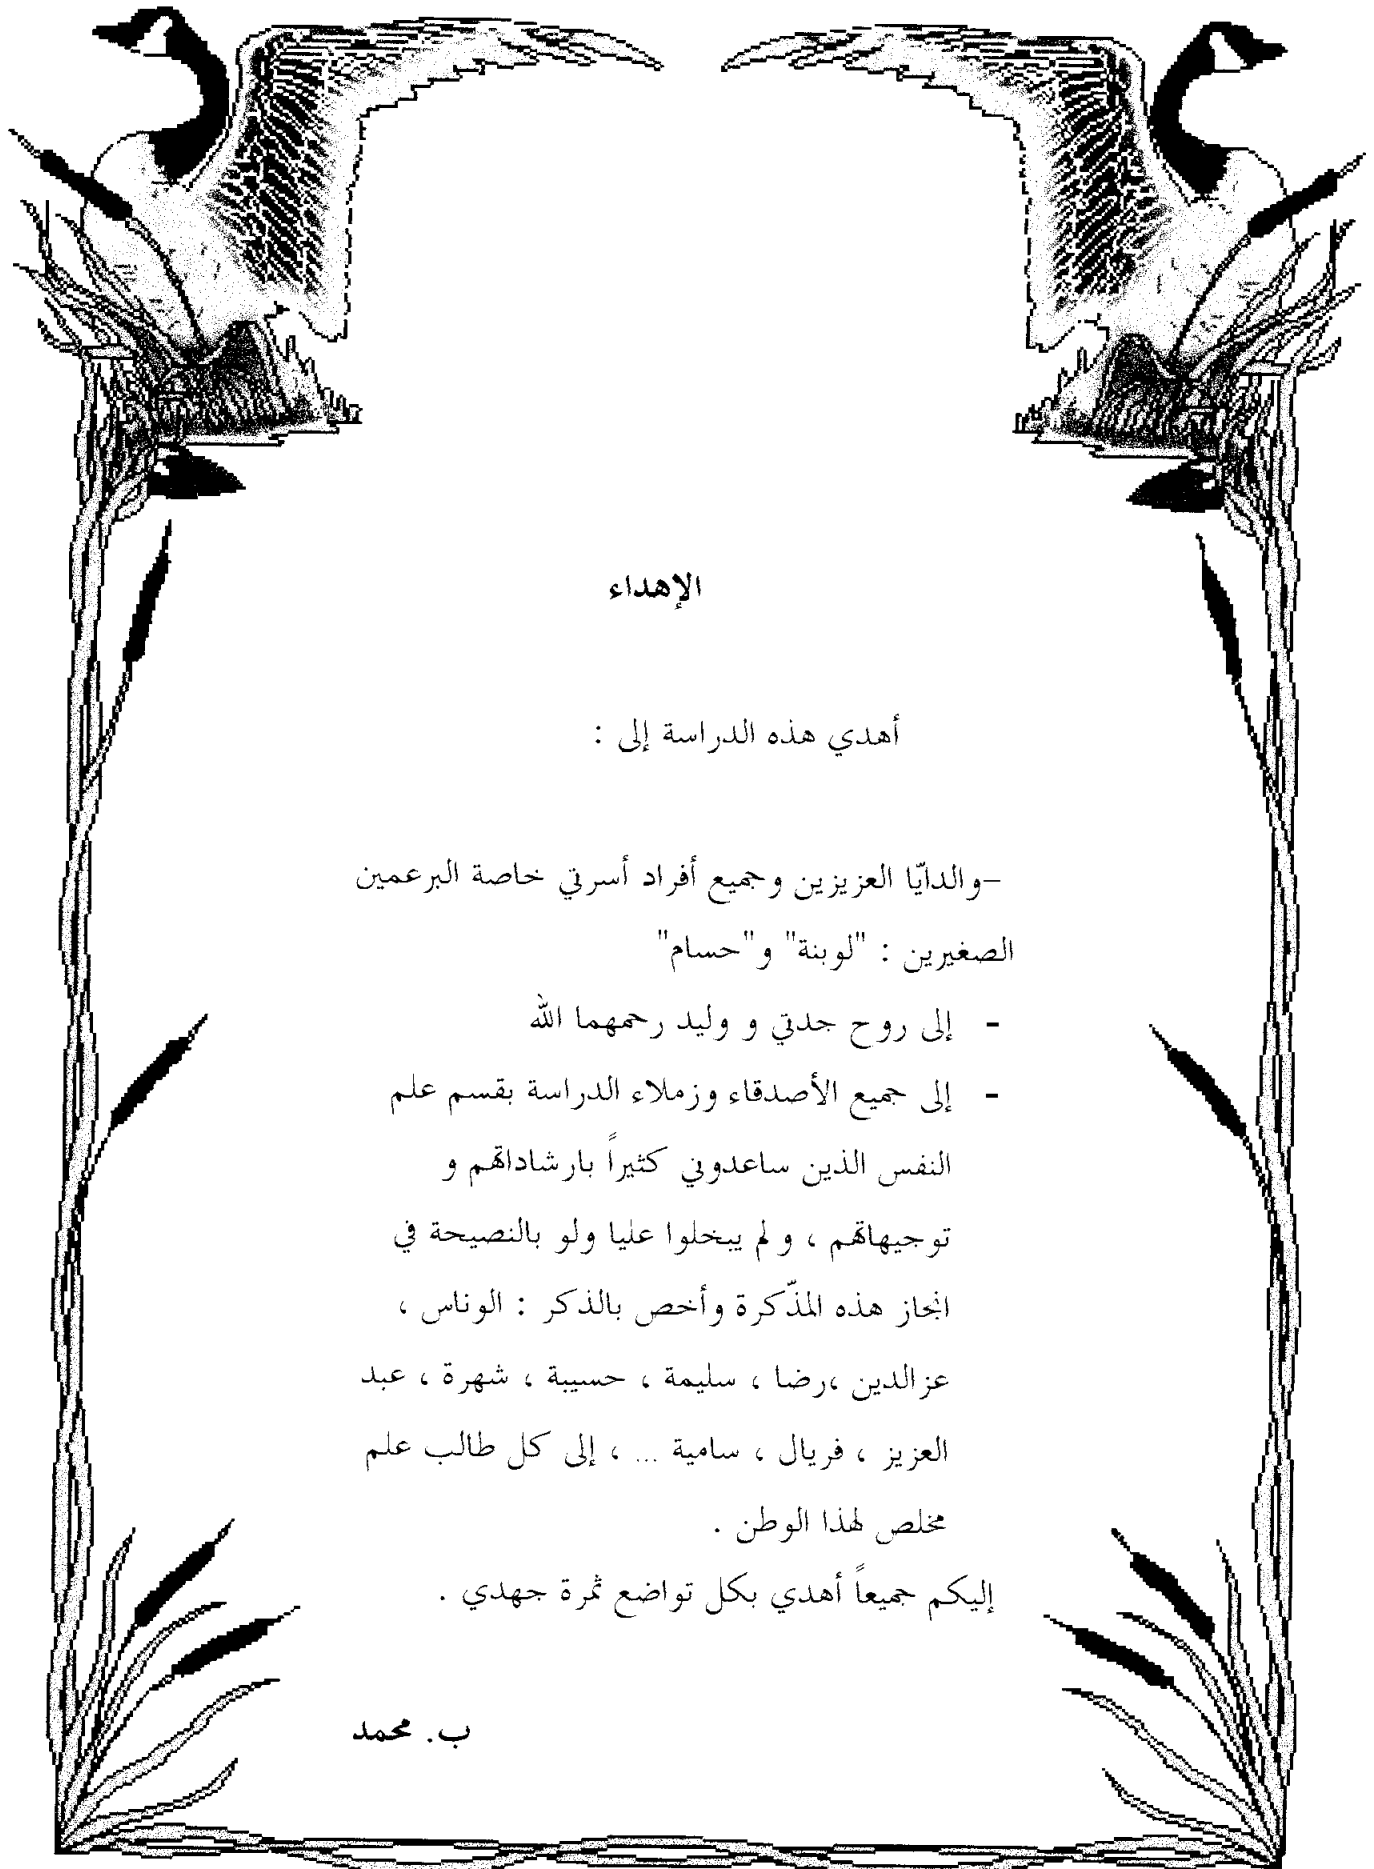 الإهداء
أهدي هذه الدراسة إلى :
–والدايّا العزيزين وجميع أفراد أسرتي خاصة البرعمين
الصغيرين : "لوبنة" و"حسام"
- إلى روح جدتي و وليد رحمهما الله
- إلى جميع الأصدقاء وزملاء الدراسة بقسم علم
النفس الذين ساعدوني كثيراً بارشاداتهم و
توجيهاتهم ، و لم يبخلوا عليا ولو بالنصيحة في
انجاز هذه المذّكرة وأخص بالذكر : الوناس ،
عزالدين ،رضا ، سليمة ، حسيبة ، شهرة ، عبد
العزيز ، فريال ، سامية ... ، إلى كل طالب علم
مخلص لهذا الوطن .
إليكم جميعاً أهدي بكل تواضع ثمرة جهدي .
ب. محمد